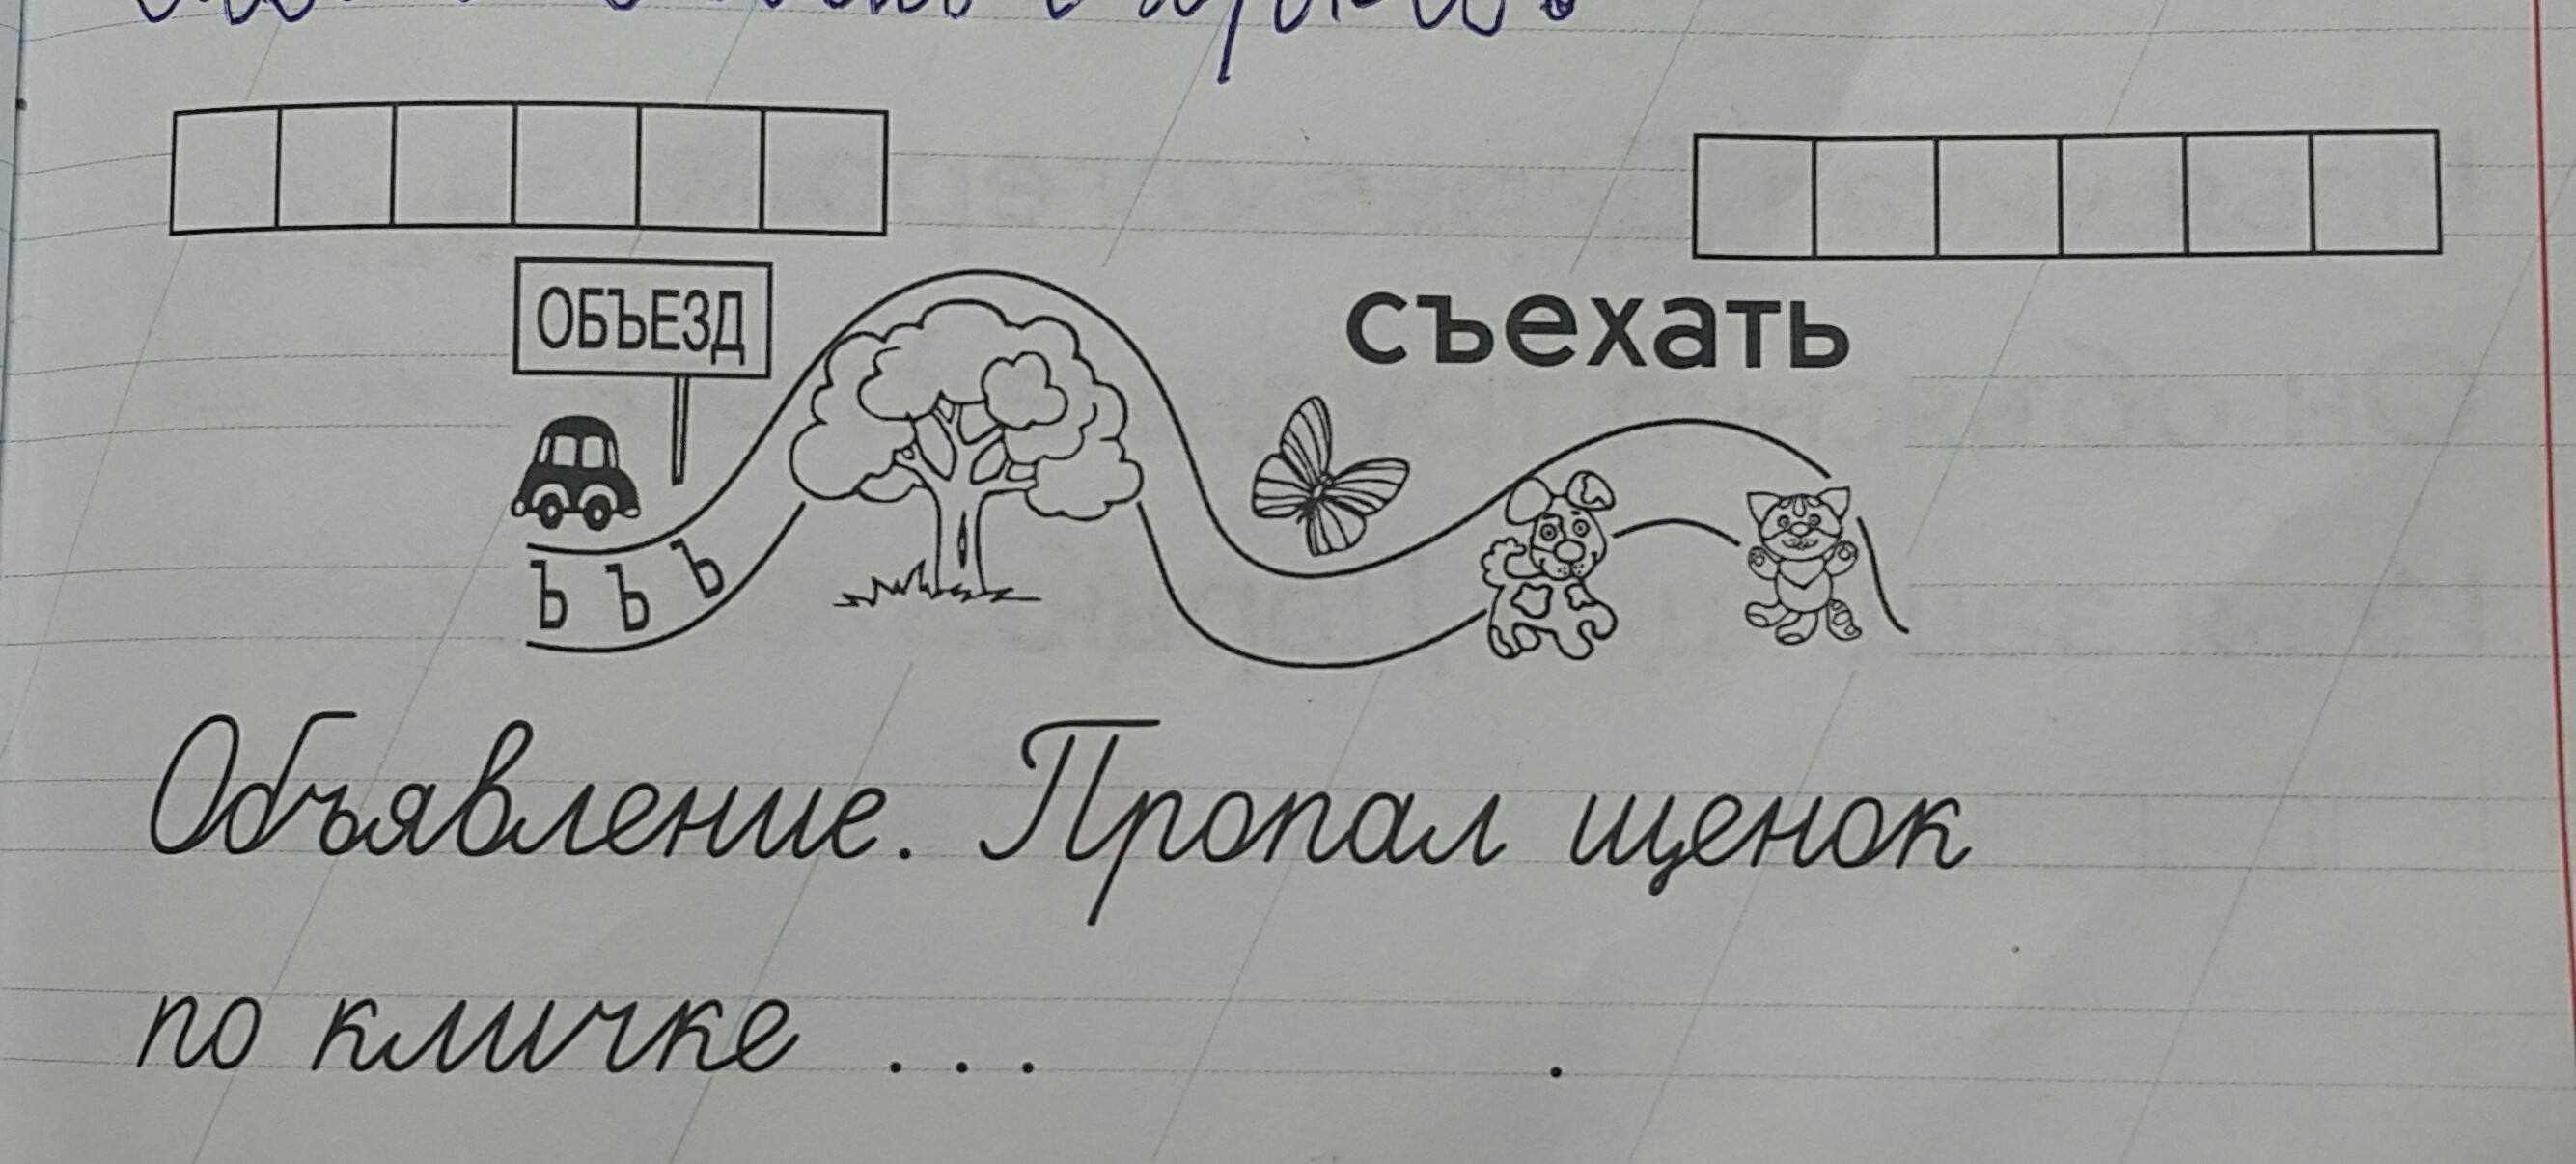 ОБЪЕЗД
съехать
Ъ Ъ Ъ
Объявление. Пропал щенок
по кличке ... .